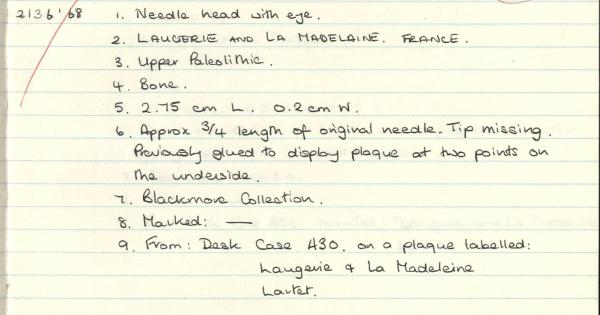 2136'68 1. Needle head with eye.
2. LAUGERIE AND LA MADELAINE. FRANCE.
3. Upper Paleolithic.
4. Bone.
5. 2.75 cm L. 0.2 cm W.
6. Approx 3/4 length of original needle. Tip missing.
Previously glued to display plaque at two points on
the underside.
7. Blackmore Collection.
8. Marked: —
9. From: Desk Case 430. on a plaque labelled:
Laugerie & La Madeleine
Lartet.